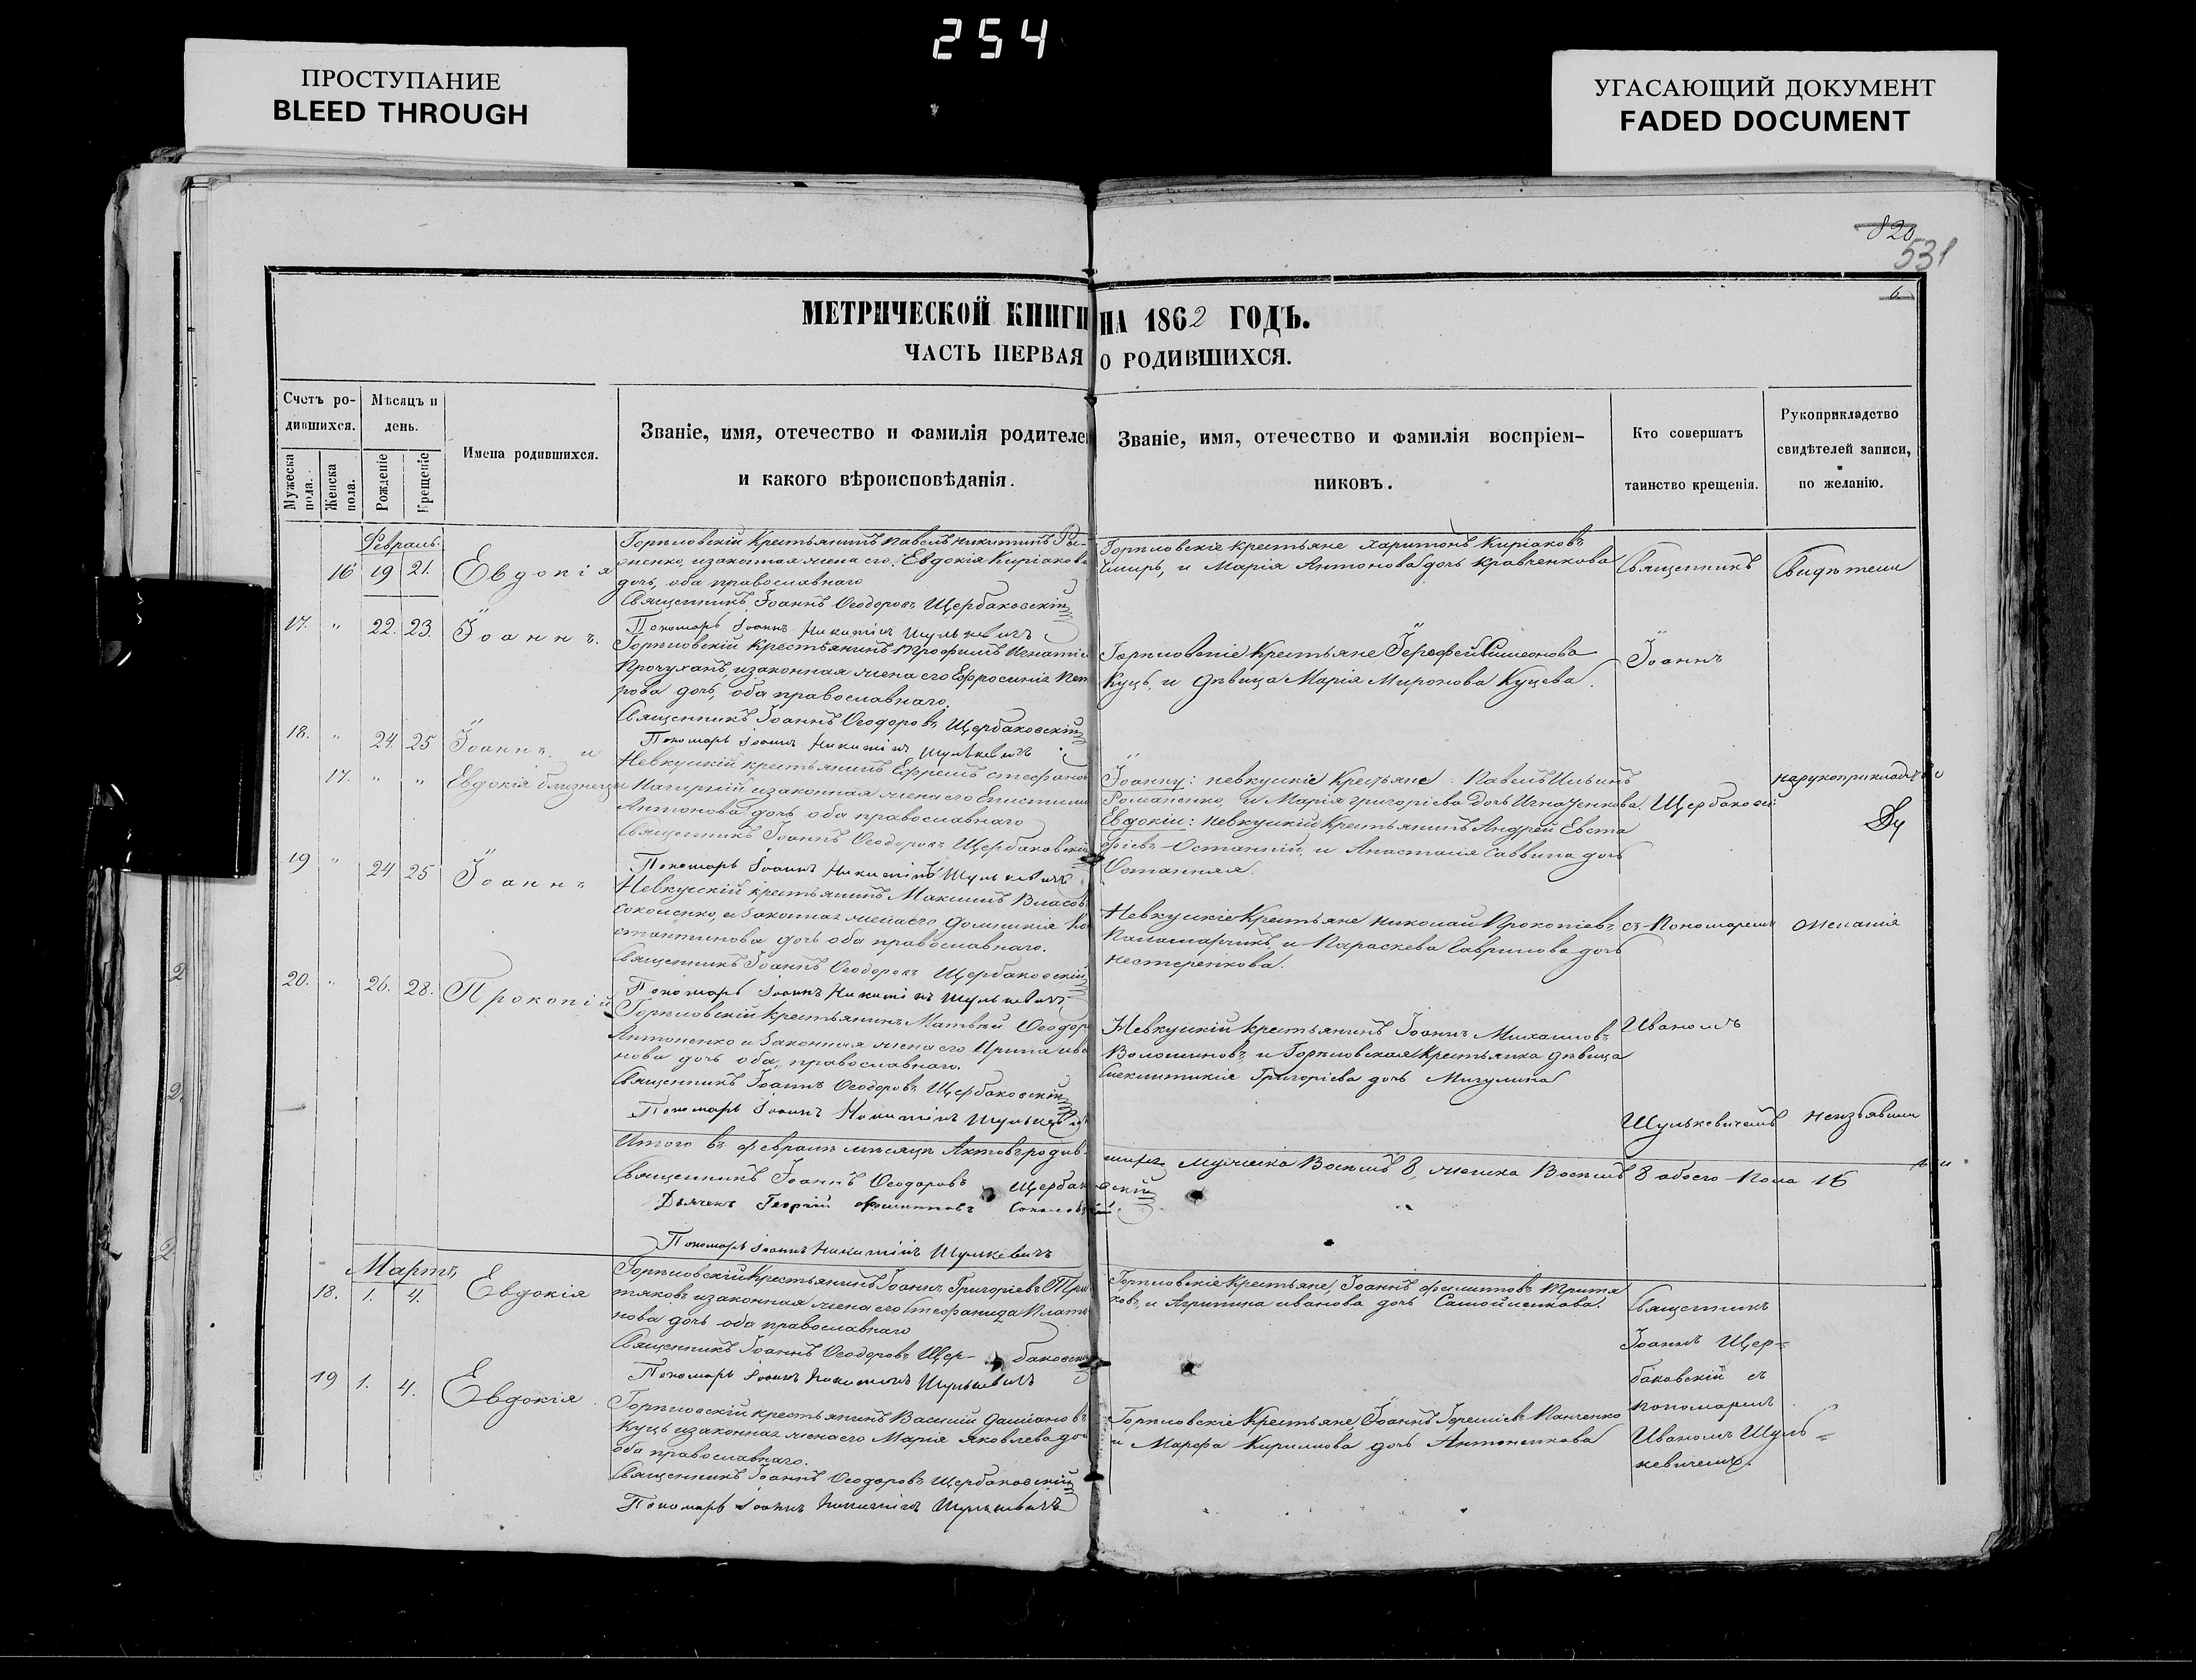 254
ПРОСТУПАНИЕ
BLEED THROUGH
УГАСАЮЩИЙ ДОКУМЕНТ
FADED DOCUMENT
820
531
6
МЕТРИЧЕСКОЙ КНИГИ НА 1862 ГОДЪ.
ЧАСТЬ ПЕРВАЯ О РОДИВШИХСЯ.
Счетъ ро-
дившихся.
Мужеска пола.
Женска пола.
Мѣсяцъ и
день.
Рожденіе
Крещеніе
Имена родившихся.
Званіе, имя, отечество и фамилія родителе
и какого вѣроисповѣданія.
Званіе, имя, отечество и фамилія воспріем-
никовъ.
Кто совершатъ
таинство крещенія.
Рукоприкладство
свидѣтелей записи,
по желанію.
Февраль.
16 19 21. Евдокія
крестьянинъ Павелъ Никитинъ
законная жена его Евдокія Киріакова
дочь, оба православнаго
Священникъ Іоаннъ Ѳеодоровъ Щербаковскій
Пономарь Іоаннъ Никитинъ Шулькевичъ
крестьяне Харитонъ Киріаковъ
и Марія Антонова дочь Кравченкова
Священникъ
Свидѣтели
17. " 22. 23. Іоаннъ.
крестьянинъ Игнатіе
изаконная жена его Ефросинія Пет
рова дочь, оба православнаго.
Священникъ Іоаннъ Ѳеодоровъ Щербаковскій
Пономарь Іоаннъ Никитинъ Шулькевичъ
Крестьяне Іерофей Симеонова
Куцъ, и дѣвица Марія Миронова Куцева.
Іоаннъ
18. " 24. 25 Іоаннъ, и
17. " " Евдокія близнецы
крестьянинъ Ефремъ Стефанов
изаконная жена его
Антонова дочь оба православнаго
Священникъ Іоаннъ Ѳеодоровъ Щербаковскій
Пономарь Іоаннъ Никитинъ Шулькевичъ
Іоанну: невкускіе Крестьяне: Павелъ Ильинъ
Романенко, и Марія Григоріева дочь Игнатенкова.
Евдокіи: Невкускій Крестьянинъ Андрей Евста
фіевъ и Анастасія Саввина дочь
Щербаковскій
нарукоприкладство
19 " 24. 25 Іоаннъ
крестьянинъ Максимъ Власов
изаконная жена его Домникія Ко
стантинова дочь оба православнаго.
Священникъ Іоаннъ Ѳеодоровъ Щербаковскій
Пономарь Іоаннъ Никитинъ Шулькевичъ
Невкускіе Крестьяне Николай Прокопіевъ
и Параскева Гаврилова дочь
Нестеренкова.
съ Пономаремъ
желанія
20. " 26. 28. Прокопій
крестьянинъ Матвей Ѳеодор
Антоненко изаконная жена его Ирина Ива
нова дочь оба, православнаго.
Священникъ Іоаннъ Ѳеодоровъ Щербаковскій
Пономарь Іоаннъ Никитинъ Шулькевичъ
Невкускій крестьянинъ Іоаннъ Михаиловъ
Волошиновъ, и Крестьянка дѣвица
Григоріева дочь Мигулина
Иваномъ
Шулькевичемъ
неизъявили
Итого въ февралѣ мѣсяцѣ Актовъ родив
шихся мужеска Восемь 8, женска Восемь 8 обоего Пола 16
Священникъ Іоаннъ Ѳеодоровъ Щербаковскій
Дьячекъ Георгій Филипповъ
Пономарь Іоаннъ Никитинъ Шулькевичъ
Мартъ,
18. 1. 4. Евдокія
Крестьянинъ Іоаннъ Григоріевъ Три
тяковъ изаконная жена его Стефанида Плато
нова дочь оба православнаго
Священникъ Іоаннъ Ѳеодоровъ Щер- баковскій
Пономарь Іоаннъ Никитинъ Шулькевичъ
Крестьяне, Іоаннъ Филипповъ Тритя
ковъ, и Агрипина Иванова дочь Самойленкова.
Священникъ
Іоаннъ Щер=
баковскій съ
пономаремъ
Иваномъ Шуль=
кевичемъ.
19 1. 4. Евдокія
крестьянинъ Василій Даміановъ
Куцъ изаконная жена его Марія Яковлева доч
оба православнаго.
Священникъ Іоаннъ Ѳеодоровъ Щербаковскій
Пономарь Іоаннъ Никитинъ Шулькевичъ
Крестьяне Іоаннъ Панченко
и Марфа Кирилова дочь Антоненкова